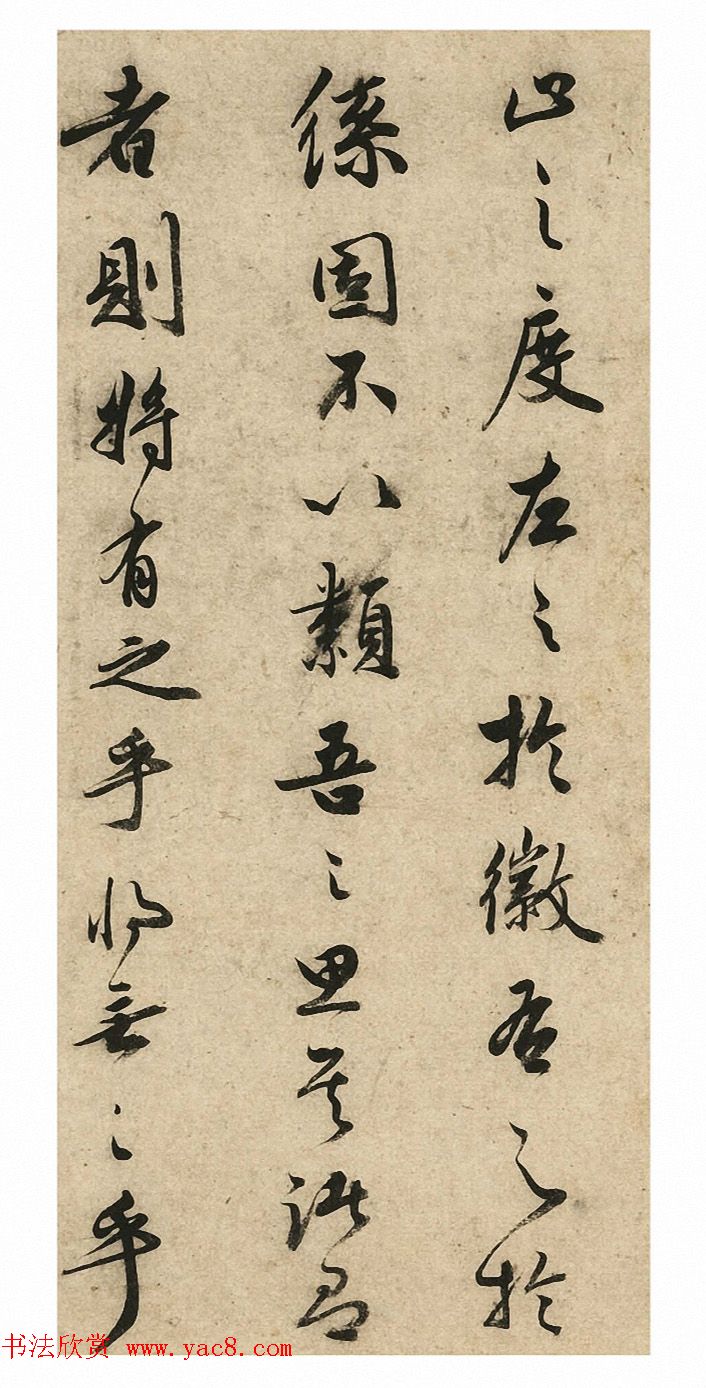 之度左之於徽右之於
固不以類吾之思其
者則將有之乎將無之乎
书法欣赏 www.yac8.com